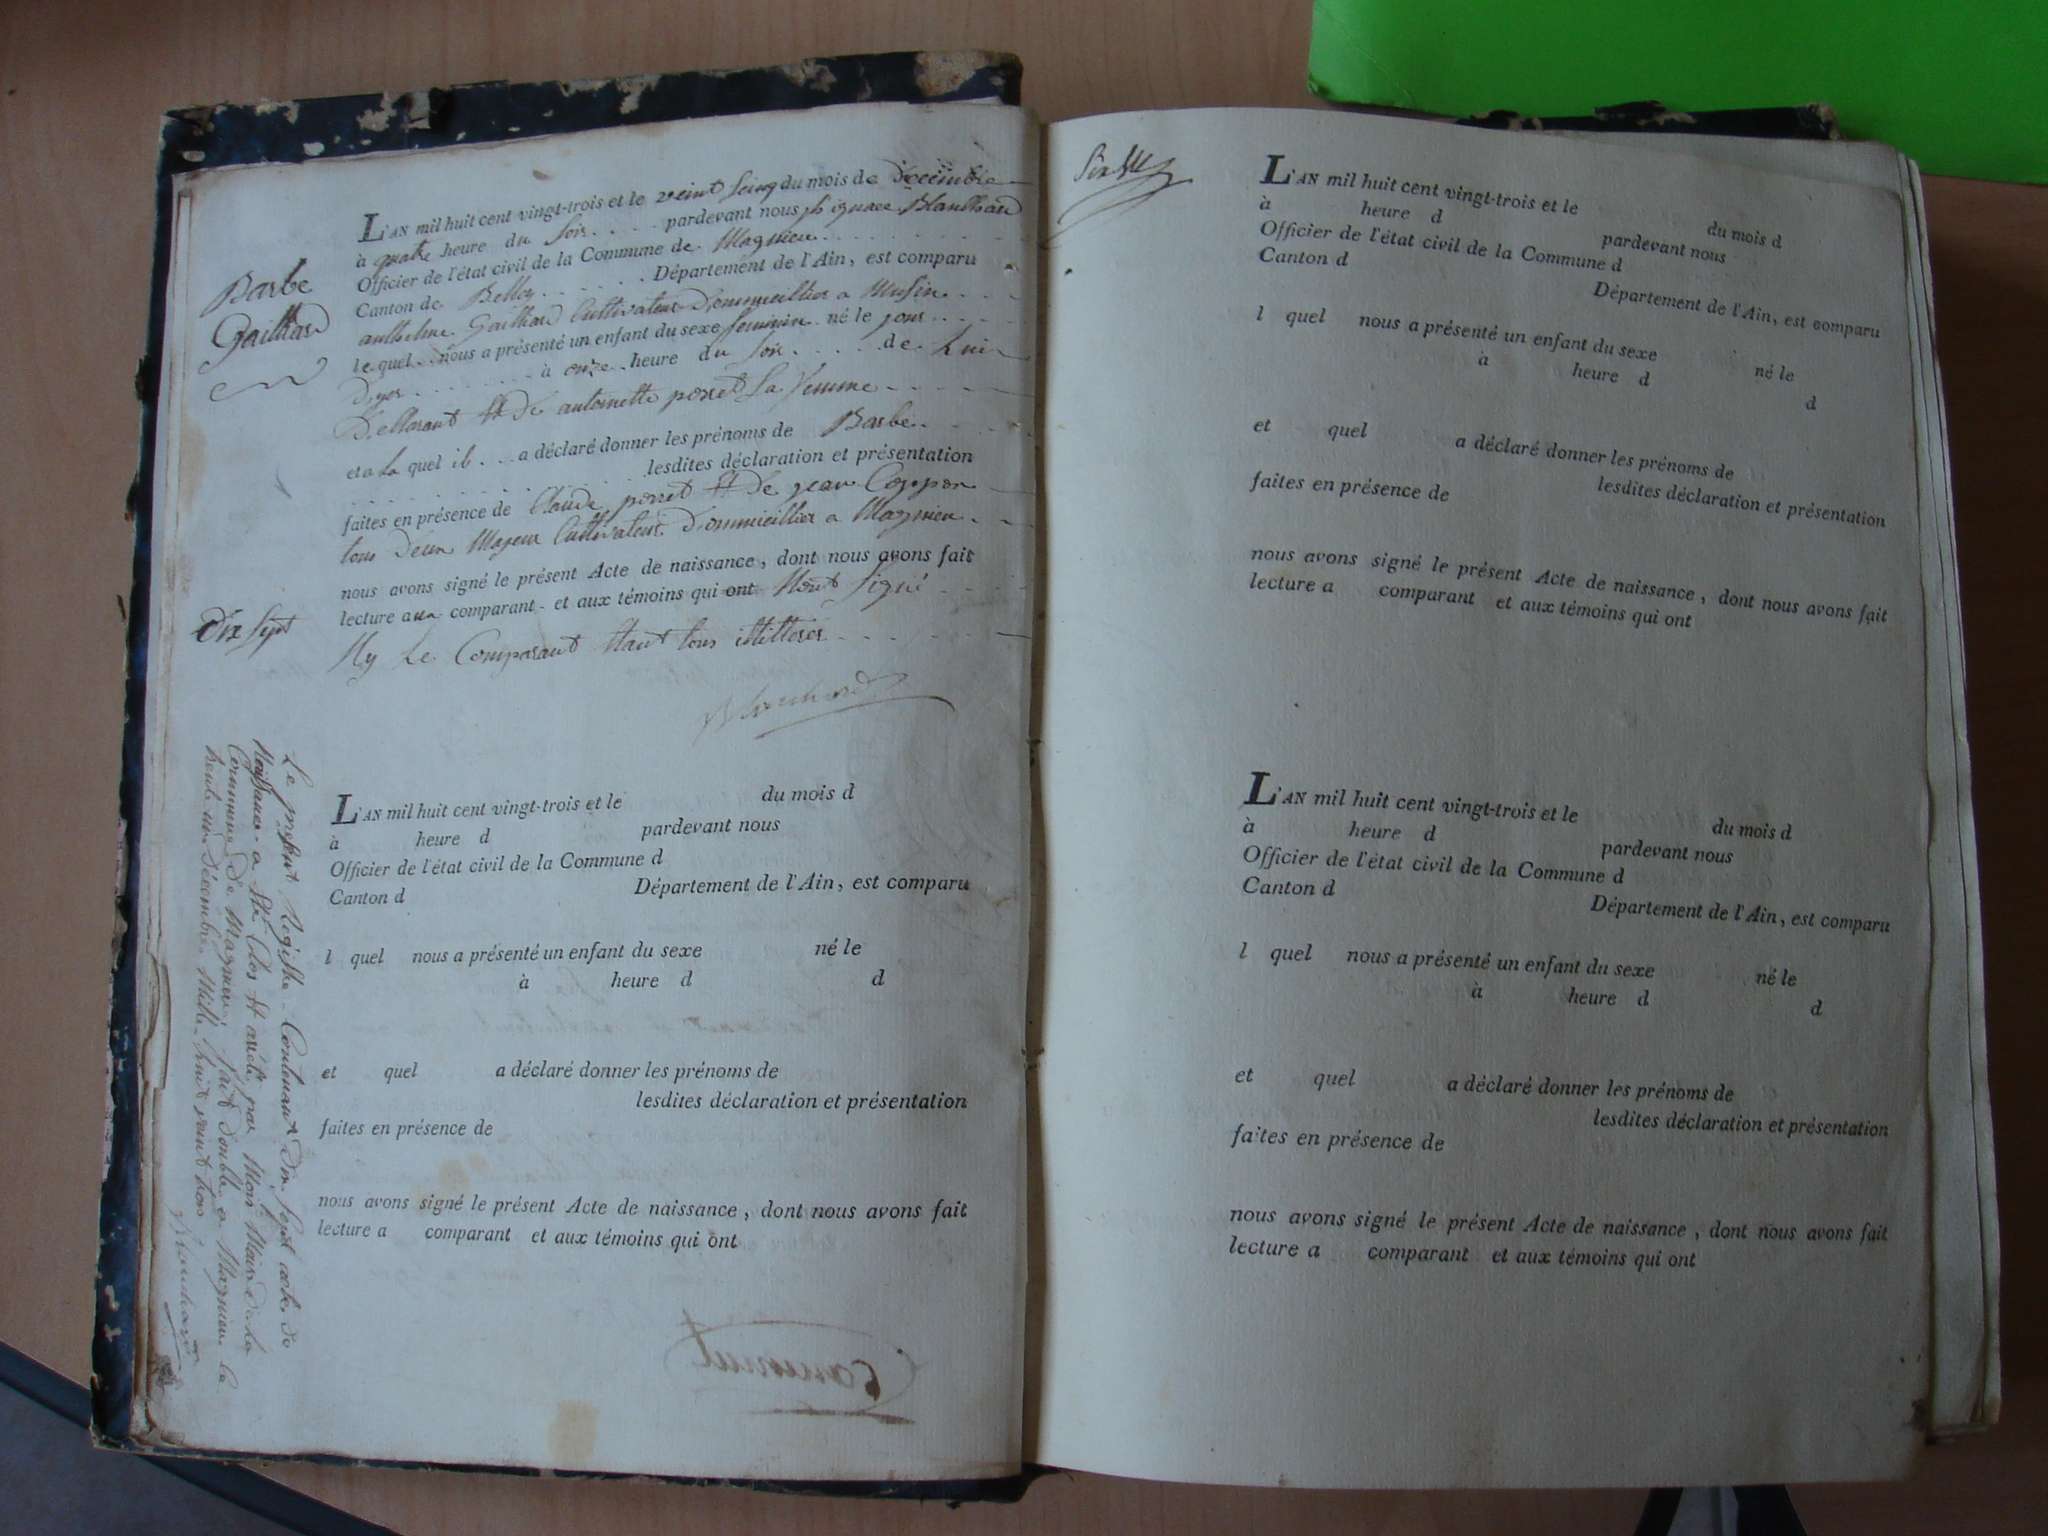 Barbe
Gailhard
L'AN mil huit cent vingt-trois et le veint Seinq du mois de Decembre
à quatre heure du Soir pardevant nous jh ignace Blanchard
Officier de l'état civil de la Commune de Magnieu
Canton de Belley Département de l'Ain, est comparu
anthelme Gailhard Cultivateur Dommicillier a Musin
lequel nous a présenté un enfant du sexe feminin né le jour
D'yer à onze heure du Soir de Lui
Dellarant et de antoinette porret Sa femme
et a La quel il a déclaré donner les prénoms de Barbe
lesdites déclaration et présentation
faites en présence de Claude porret et de jean Coppon
tous deux Majeur Cultivateur Dommicillier a Magnieu
nous avons signé le présent Acte de naissance, dont nous avons fait
lecture au comparant et aux témoins qui ont Nont Signé
Ny Le Comparant Etant tous illitterés
Blanchard
Dix Sept
Le present Registre Contenant dix Sept acte de
Naissance a Eté Clos et arrété par Nous Maire de La
Commune de Magnieu, fait double a Magnieu Le
trente un Décembre Mille huit veint trois
Blanchard
L'AN mil huit cent vingt-trois et le du mois d
à heure d pardevant nous
Officier de l'état civil de la Commune d
Canton d Département de l'Ain, est comparu
l quel nous a présenté un enfant du sexe né le
à heure d d
et quel a déclaré donner les prénoms de
lesdites déclaration et présentation
faites en présence de
nous avons signé le présent Acte de naissance, dont nous avons fait
lecture a comparant et aux témoins qui ont
L'AN mil huit cent vingt-trois et le du mois d
à heure d pardevant nous
Officier de l'état civil de la Commune d
Canton d Département de l'Ain, est comparu
l quel nous a présenté un enfant du sexe né le
à heure d d
et quel a déclaré donner les prénoms de
lesdites déclaration et présentation
faites en présence de
nous avons signé le présent Acte de naissance, dont nous avons fait
lecture a comparant et aux témoins qui ont
L'AN mil huit cent vingt-trois et le du mois d
à heure d pardevant nous
Officier de l'état civil de la Commune d
Canton d Département de l'Ain, est comparu
l quel nous a présenté un enfant du sexe né le
à heure d d
et quel a déclaré donner les prénoms de
lesdites déclaration et présentation
faites en présence de
nous avons signé le présent Acte de naissance, dont nous avons fait
lecture a comparant et aux témoins qui ont